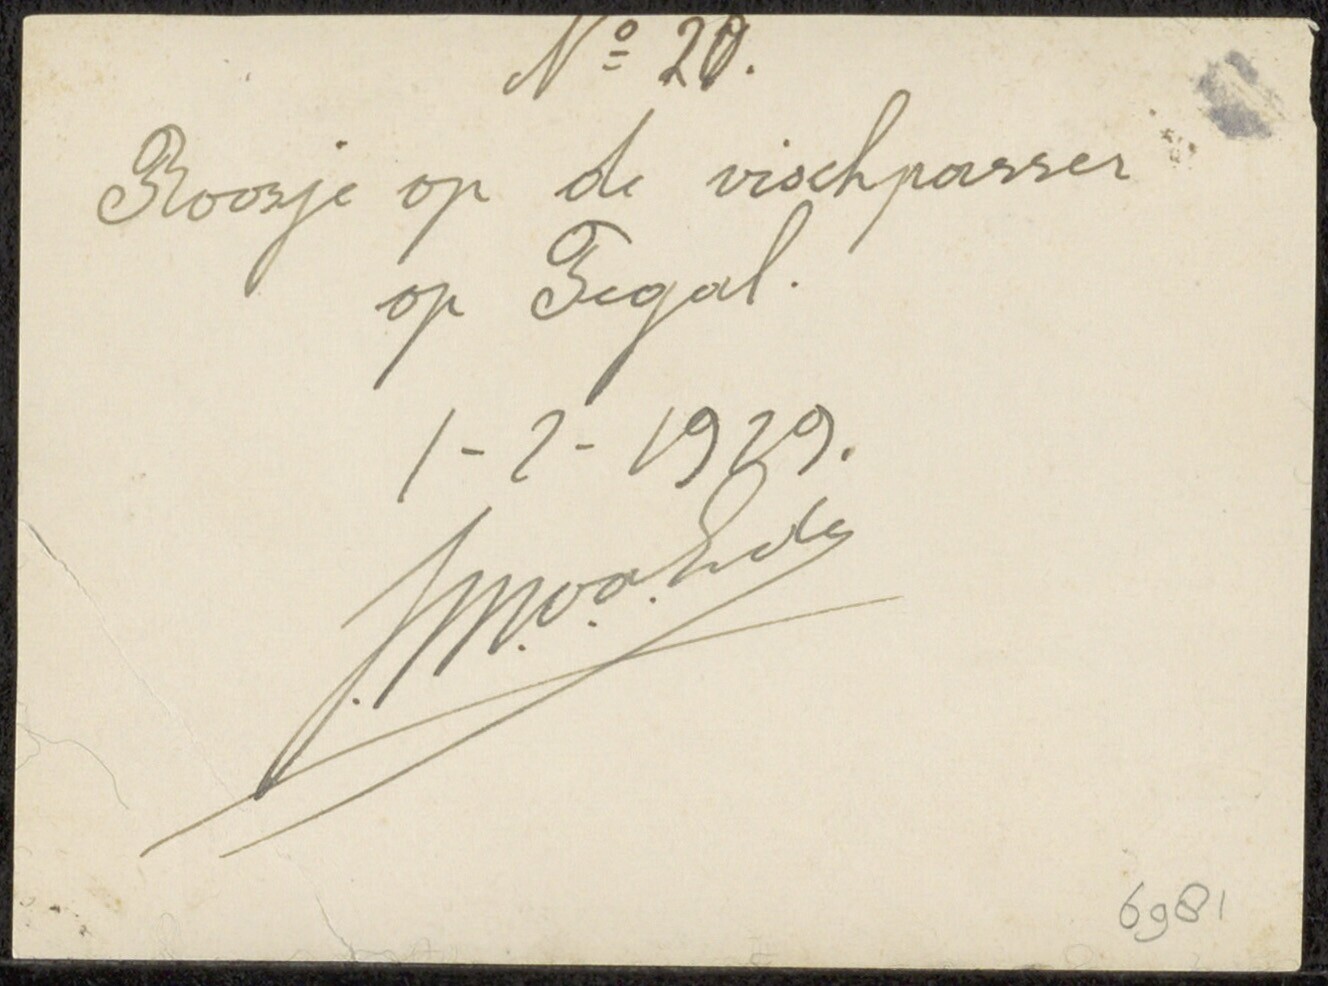 Nº 20.
Roosje op de vischpasser
op Tegal.
1-2-1929.
J.M.v.a. Ende
6981